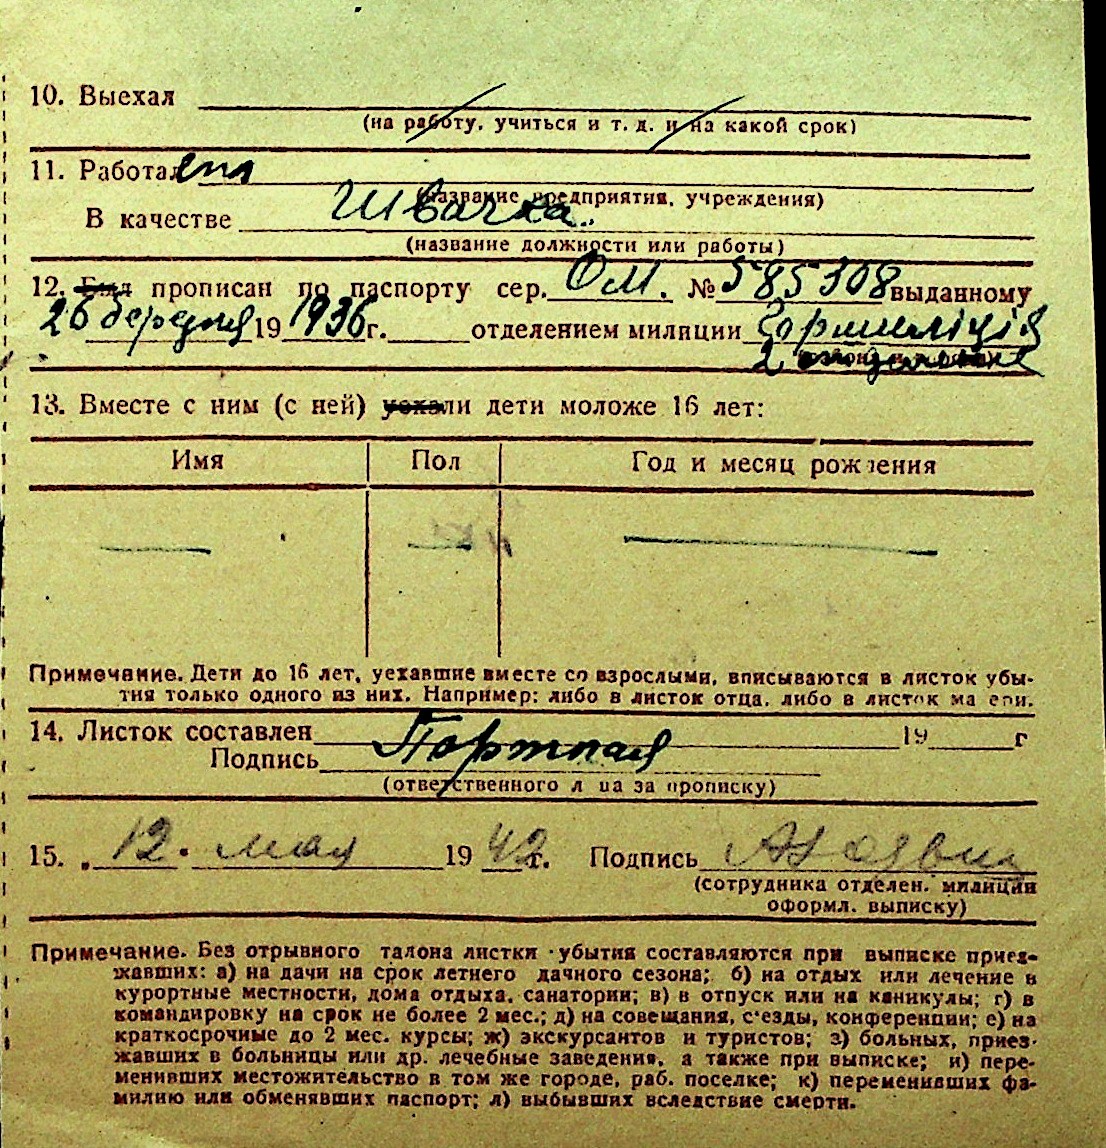 10. Выехал
(на работу, учиться и т. д. и на какой срок)
11. Работал
(название предприятия, учреждения)
В качестве Швачка.
(название должности или работы)
12. Был прописан по паспорту сер. ОМ. № 585308 выданному
26 березня 19 1936 г. отделением милиции
13. Вместе с ним (с ней) уехали дети моложе 16 лет:
Имя Пол Год и месяц рождения
Примечание. Дети до 16 лет, уехавшие вместе со взрослыми, вписываются в листок убы-
тия только одного из них. Например: либо в листок отца, либо в листок ма ери.
14. Листок составлен 19 г
Подпись
(ответственного л ца за прописку)
15. 12. мая 19 42 г. Подпись
(сотрудника отделен. милиции
оформл. выписку)
Примечание. Без отрывного талона листки убытия составляются при выписке приез-
жавших: а) на дачи на срок летнего дачного сезона; б) на отдых или лечение в
курортные местности, дома отдыха, санатории; в) в отпуск или на каникулы; г) в
командировку на срок не более 2 мес.; д) на совещания, с'езды, конференции; е) на
краткосрочные до 2 мес. курсы; ж) экскурсантов и туристов; з) больных, приез-
жавших в больницы или др. лечебные заведения, а также при выписке; и) пере-
менивших местожительство в том же городе, раб. поселке; к) переменивших фа-
милию или обменявших паспорт; л) выбывших вследствие смерти.